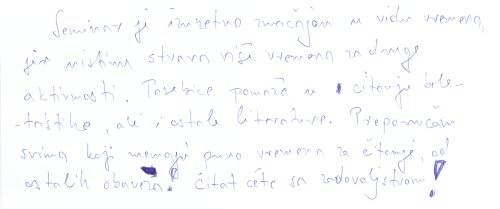 Seminar je izuzetno značajan u vidu vremena,
jer uistinu stvara više vremena za druge
aktivnosti. Posebice pomaže u čitanje bele-
-tristike, ali i ostale literature. Preporučam
svima koji nemaju puno vremena za čitanje, od
ostalih obaveza! Čitat ćete sa zadovoljstvom!